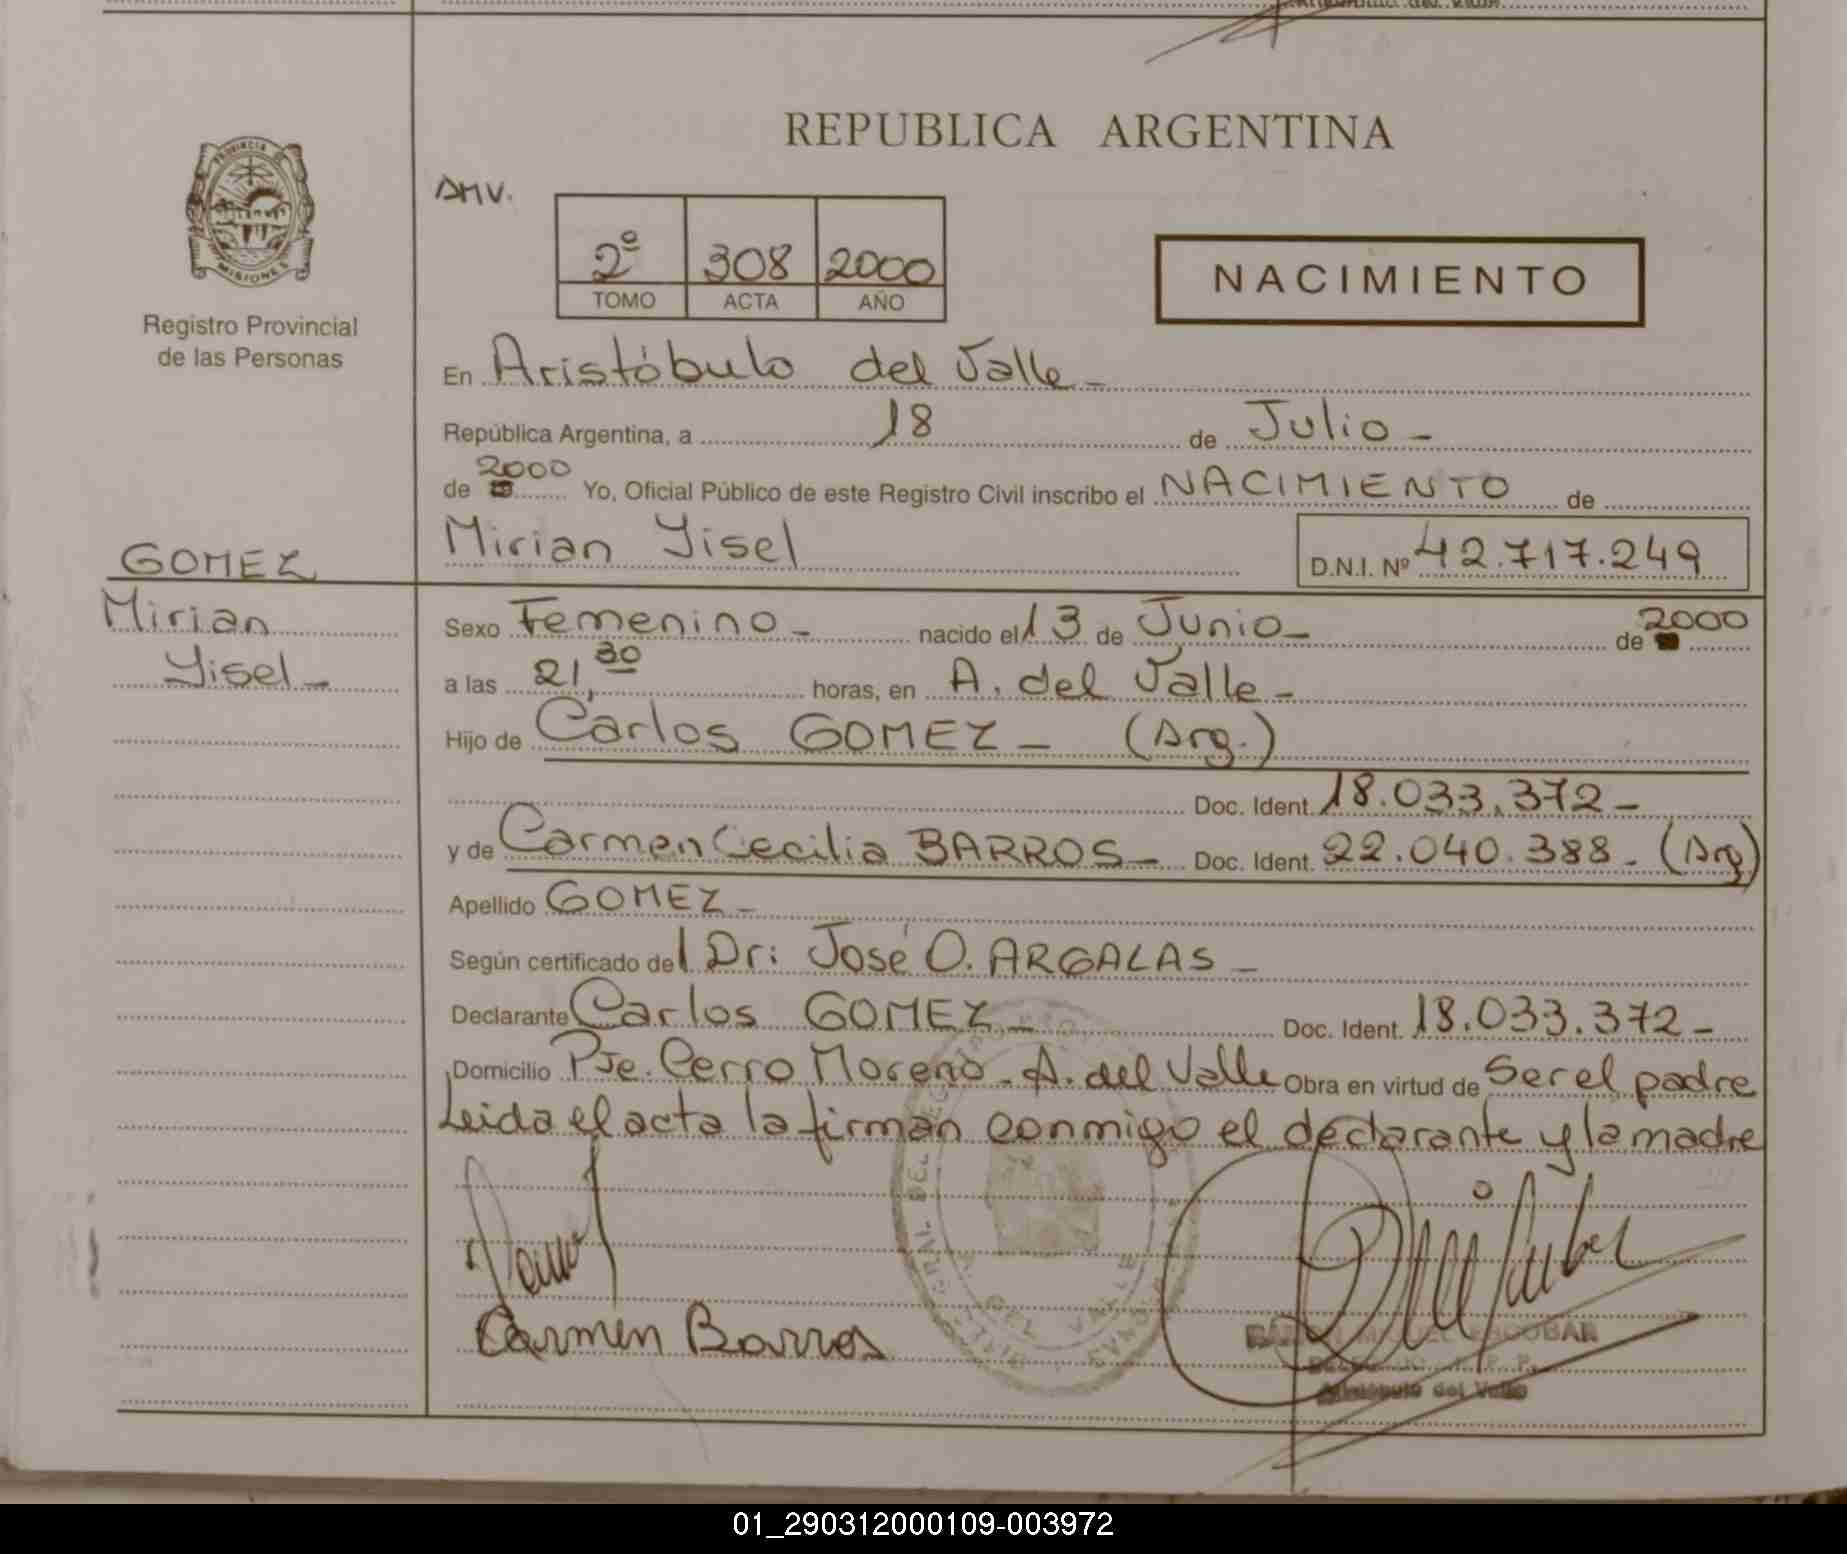 REPUBLICA ARGENTINA
PROVINCIA DE
MISIONES
Registro Provincial
de las Personas
AMV.
2º 308 2000
TOMO ACTA AÑO
NACIMIENTO
En Aristóbulo del Valle -
República Argentina, a 18 de Julio -
de 2000 Yo, Oficial Público de este Registro Civil inscribo el NACIMIENTO de
Mirian Yisel D.N.I. Nº 42.717.249
GOMEZ
Mirian
Yisel -
Sexo Femenino - nacido el 13 de Junio - de 2000
a las 21,30 horas, en A. del Valle -
Hijo de Carlos GOMEZ - (Arg.)
Doc. Ident. 18.033.372 -
y de Carmen Cecilia BARROS - Doc. Ident. 22.040.388 - (Arg)
Apellido GOMEZ -
Según certificado del Dr: José O. ARGALAS -
Declarante Carlos GOMEZ - Doc. Ident. 18.033.372 -
Domicilio Pje. Cerro Moreno - A. del Valle Obra en virtud de Ser el padre
Leida el acta la firman conmigo el declarante y la madre
Carmen Barros
ESCOBAR
Aristóbulo del Valle
01_290312000109-003972